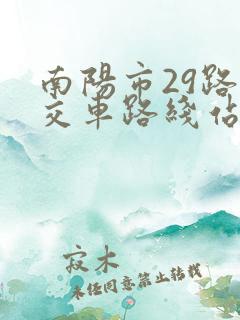 南陽市29路
交車路綫佔
寂木
未經同意禁止轉載